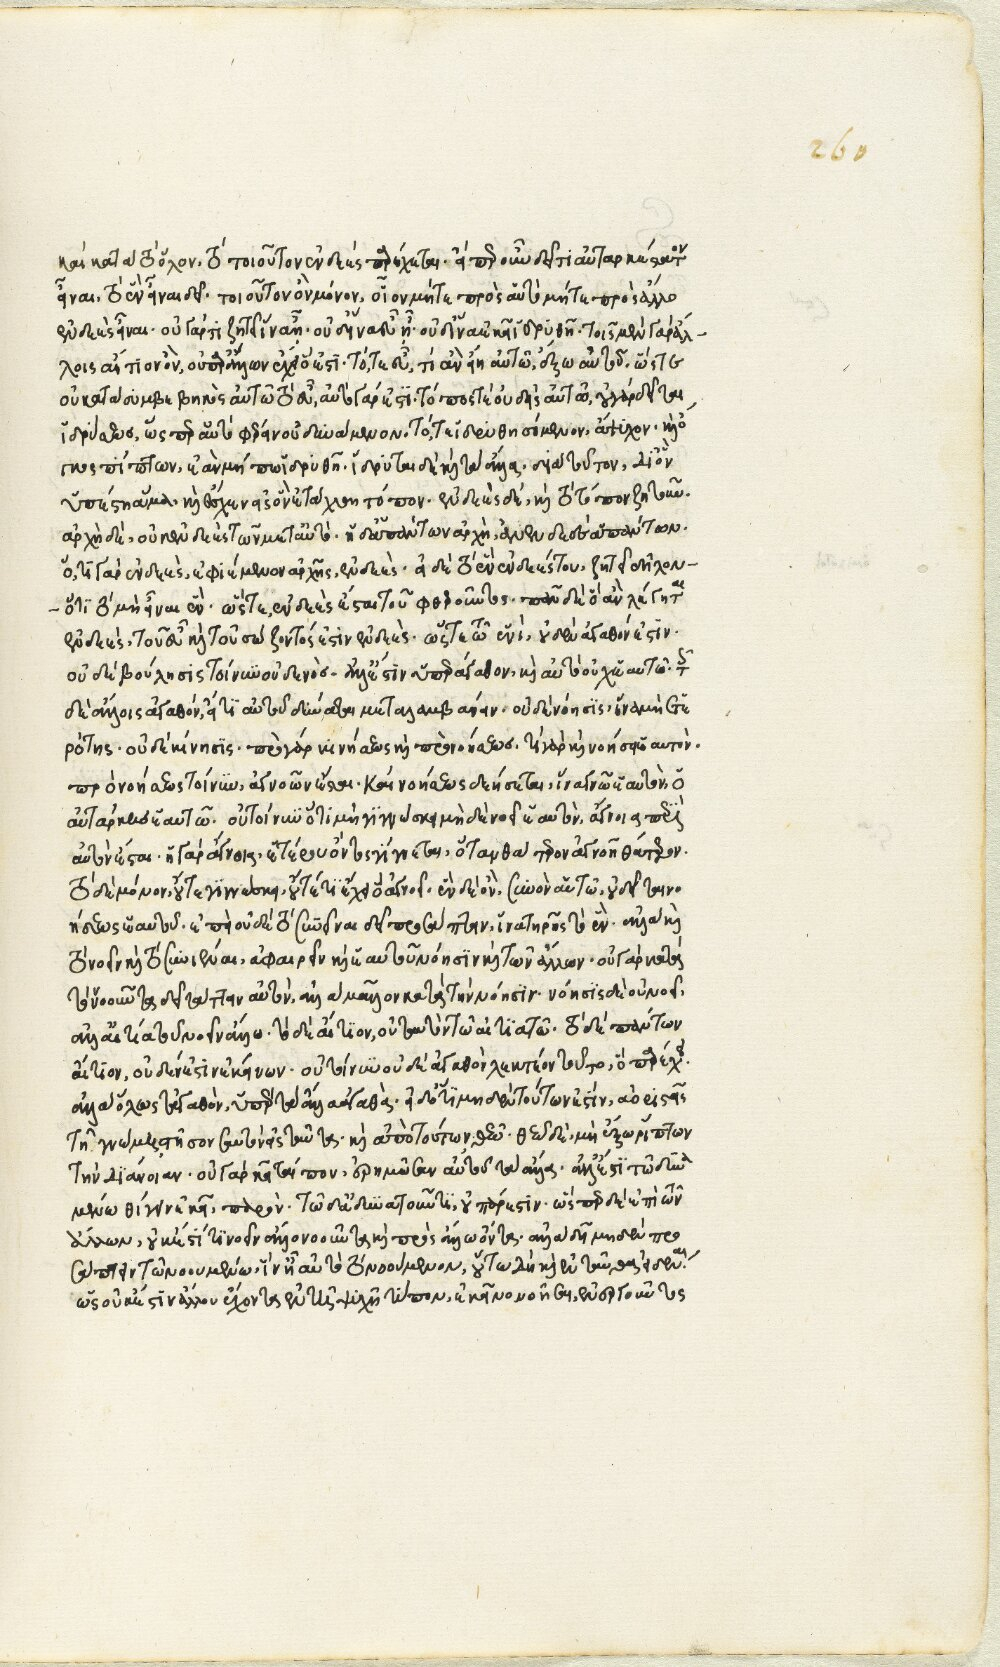 260
καὶ κατὰ τὸ ὅλον, τὸ τοιοῦτον ἐνδεὲς παρέχεται. εἰ περ οὖν δεῖ τι αὐταρκέστατον
εἶναι, τὸ ἓν εἶναι δεῖ. τοιοῦτον ὂν μόνον, οἷον μήτε πρὸς αὑτὸ μήτε πρὸς ἄλλο
ἐνδεὲς εἶναι. οὐ γάρ τι ζητεῖ ἵνα ᾖ. οὐδ' ἵνα εὖ ᾖ. οὐδ' ἵνα ἐκεῖ ἱδρυθῇ. τοῖς μὲν γὰρ ἄλ-
λοις αἴτιον ὄν, οὐ παρ' ἄλλων ἔχει ὅ ἐστι. τό, τε εὖ, τί ἂν εἴη αὐτῷ, ἔξω αὐτοῦ. ὥστε
οὐ κατὰ συμβεβηκὸς αὐτῷ τὸ εὖ, αὐτὸ γάρ ἐστι. τόπος τε οὐδεὶς αὐτῷ, οὐ γὰρ δεῖται
ἱδρύσεως, ὥσπερ αὑτὸ φέρειν οὐ δυνάμενον. τό, τε ἱδρυθησόμενον, ἄψυχον. καὶ ὄ
γκος πίπτων, ἐὰν μήπω ἱδρυθῇ. ἵδρυται δὲ καὶ τὰ ἄλλα διὰ τοῦτον, δι' ὃν
ὑπέστη ἅμα. καὶ ἔσχεν εἰς ὃν ἐτάχθη τόπον. ἐνδεὲς δέ, καὶ τὸ τόπον ζητοῦν.
ἀρχὴ δέ, οὐκ ἐνδεὲς τῶν μετ' αὐτό. ἡ δ' ἁπάντων ἀρχή, ἀνενδεὲς ἁπάντων.
ὅ, τι γὰρ ἐνδεές, ἐφιέμενον ἀρχῆς, ἐνδεές. εἰ δὲ τὸ ἓν ἐνδεές του, ζητεῖ δηλον-
-ότι τὸ μὴ εἶναι ἕν. ὥστε, ἐνδεὲς ἔσται τοῦ φθεροῦντος. πᾶν δὲ ὃ ἂν λέγηται
ἐνδεές, τοῦ εὖ καὶ τοῦ σώζοντός ἐστιν ἐνδεές. ὥστε τῷ ἑνί, οὐδὲν ἀγαθόν ἐστιν.
οὐδὲ βούλησις τοίνυν οὐδενός. ἀλλ' ἔστιν ὑπεράγαθον, καὶ αὐτὸ οὐχ ἑαυτῷ. τοῖς
δὲ ἄλλοις ἀγαθόν, εἴ τι αὐτοῦ δύναται μεταλαμβάνειν. οὐδὲ νόησις, ἵνα μὴ ἑτε
ρότης. οὐδὲ κίνησις. πρὸ γὰρ κινήσεως καὶ πρὸ νοήσεως. τί γὰρ καὶ νοήσει ἑαυτόν.
πρὸ νοήσεως τοίνυν, ἀγνοῶν ἔσται. καὶ νοήσεως δεήσεται, ἵνα γνῷ ἑαυτὸν, ὁ
αὐτάρκης ἑαυτῷ. οὐ τοίνυν ὅτι μὴ γιγνώσκει μηδὲ νοεῖ ἑαυτόν, ἄγνοια περὶ
αὐτὸν ἔσται. ἡ γὰρ ἄγνοια, ἑτέρου ὄντος γίγνεται, ὅταν θάτερον ἀγνοῇ θάτερον.
τὸ δὲ μόνον, οὔτε γιγνώσκει, οὔτέ τι ἔχει ὃ ἀγνοεῖ. ἓν δὲ ὄν, συνὸν αὑτῷ, οὐ δεῖται νο
ήσεως ἑαυτοῦ. ἐπεὶ οὐδὲ τὸ συνεῖναι δεῖ προσάπτειν, ἵνα τηρῇς τὸ ἕν. ἀλλὰ καὶ
τὸ νοεῖν καὶ τὸ συνιέναι, ἀφαιρεῖν καὶ ἑαυτοῦ νόησιν καὶ τῶν ἄλλων. οὐ γὰρ κατὰ
τὸν νοοῦντα δεῖ τάττειν αὐτόν, ἀλλὰ μᾶλλον κατὰ τὴν νόησιν. νόησις δὲ οὐ νοεῖ,
ἀλλ' αἰτία τοῦ νοεῖν ἄλλῳ. τὸ δὲ αἴτιον, οὐ ταὐτὸν τῷ αἰτιατῷ. τὸ δὲ πάντων
αἴτιον, οὐδέν ἐστιν ἐκείνων. οὐ τοίνυν οὐδὲ ἀγαθὸν λεκτέον τοῦτο, ὃ παρέχει.
ἀλλὰ ἄλλως τἀγαθόν, ὑπὲρ τὰ ἄλλα ἀγαθά. εἰ δ' ὅτι μηδὲν τούτων ἐστίν, ἀοριστεῖς
τῇ γνώμῃ, στῆσον σαυτὸν εἰς ταῦτα. καὶ ἀπὸ τούτων θεῶ. θεῶ δέ, μὴ ἔξω ῥίπτων
τὴν διάνοιαν. οὐ γὰρ κεῖταί που, ἐρημῶσαν αὐτοῦ τὰ ἄλλα. ἀλλ' ἔστι τῷ δυνα
μένῳ θίγειν ἐκεῖ, παρόν. τῷ δ' ἀδυνατοῦντι, οὐ πάρεστιν. ὥσπερ δὲ ἐπὶ τῶν
ἄλλων, οὐκ ἔστί τι νοεῖν ἄλλο νοοῦντα καὶ πρὸς ἄλλῳ ὄντα. ἀλλὰ δεῖ μηδὲν προ
σάπτειν τῷ νοουμένῳ, ἵν' ᾖ αὐτὸ τὸ νοούμενον, οὕτω δὴ καὶ ἐνταῦθα εἰδέναι
ὡς οὐκ ἔστιν ἄλλου ἔχοντα ἐν τῇ ψυχῇ τύπον, ἐκεῖνο νοῆσαι, ἐνεργοῦντος